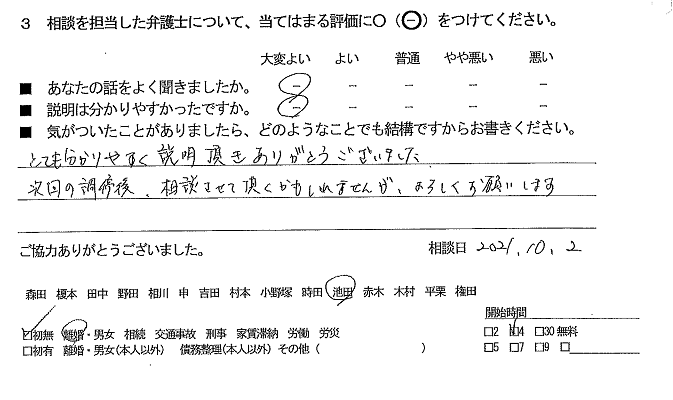 3 相談を担当した弁護士について、当てはまる評価に○(⊖)をつけてください。
大変よい よい 普通 やや悪い 悪い
■ あなたの話をよく聞きましたか。 － － － － －
■ 説明は分かりやすかったですか。 － － － － －
■ 気がついたことがありましたら、どのようなことでも結構ですからお書きください。
とても分かりやすく説明頂きありがとうございました
次回の調停後、相談させて頂くかもしれませんが、よろしくお願いします
ご協力ありがとうございました。 相談日 2021.10.2
森田 榎本 田中 野田 相川 申 吉田 村本 小野塚 時田 池田 赤木 木村 平栗 権田
開始時間
□初無 離婚・男女 相続 交通事故 刑事 家賃滞納 労働 労災 □2 □4 □30無料
□初有 離婚・男女(本人以外) 債務整理(本人以外) その他( ) □5 □7 □9 □